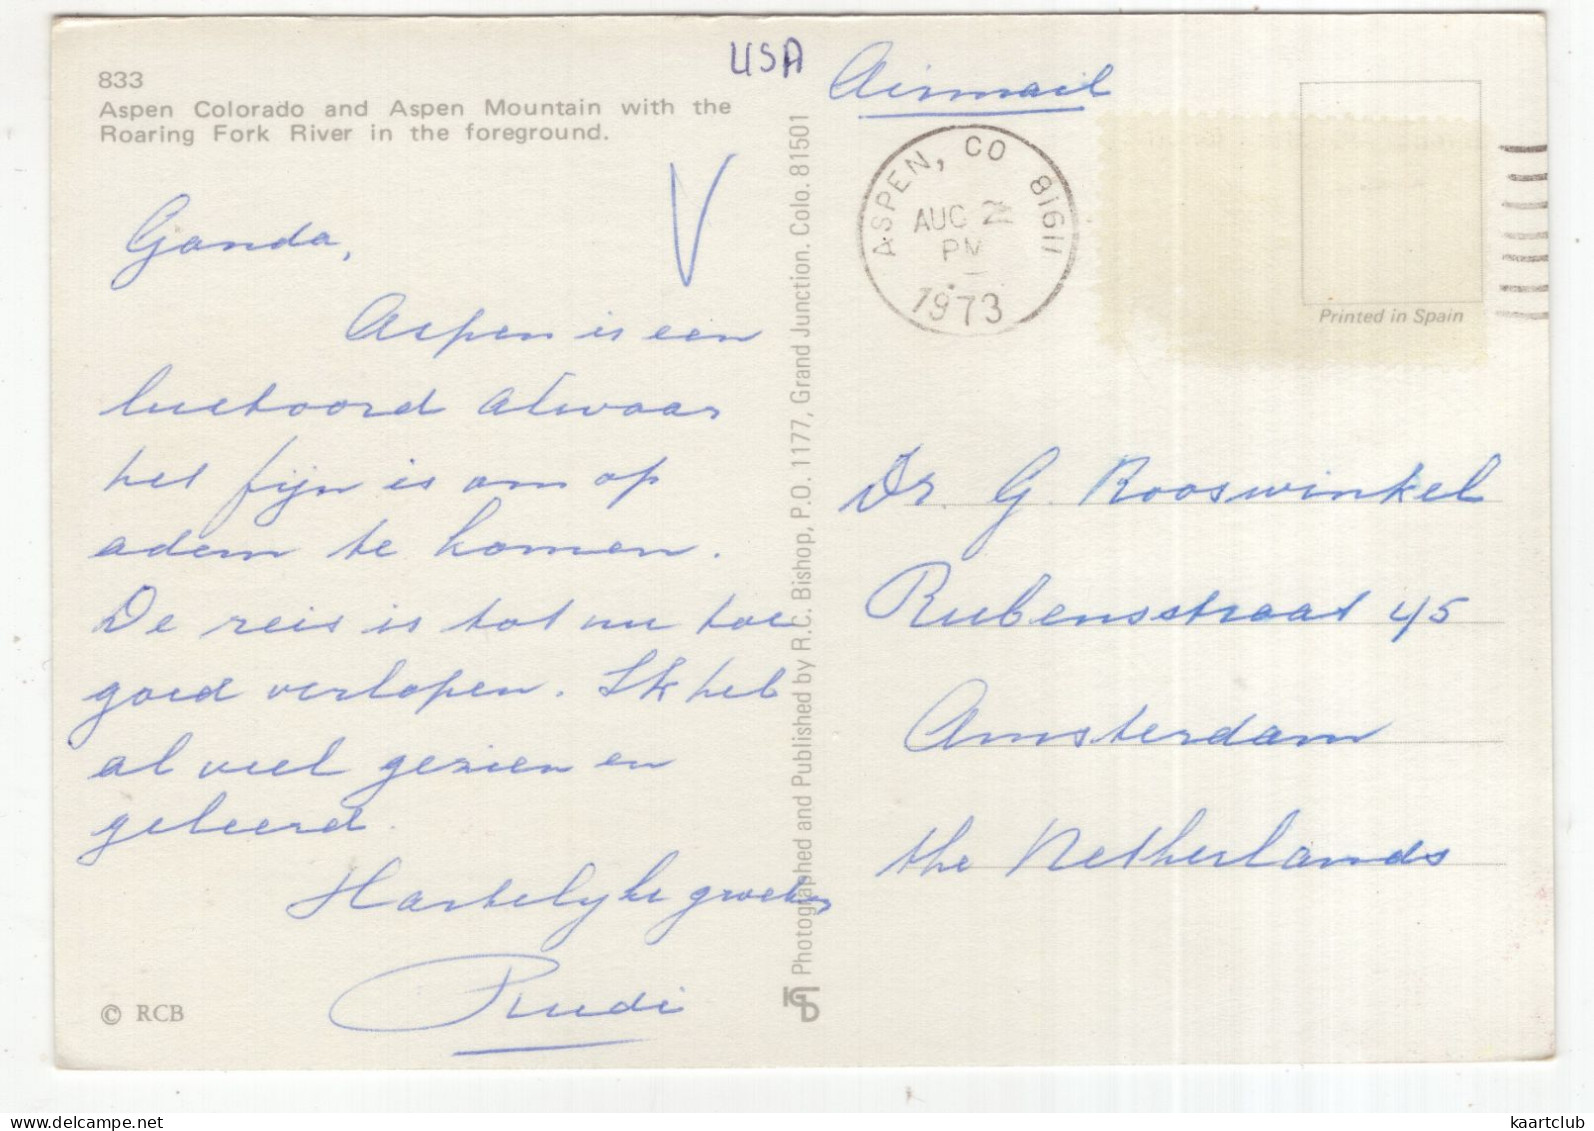 833
Aspen Colorado and Aspen Mountain with the
Roaring Fork River in the foreground.
USA
Ganda,
Aspen is een
luchtoord alwaar
het fijn is om op
adem te komen.
De reis is tot nu toe
goed verlopen. Ik heb
al veel gezien en
geleerd.
Hartelyke groeten
Rudi
© RCB
Photographed and Published by R.C. Bishop, P.O. 1177, Grand Junction. Colo. 81501
Airmail
ASPEN, CO 81611
AUG 2
PM
1973
Printed in Spain
Dr. G. Rooswinkel
Rubensstraat 45
Amsterdam
the Netherlands
kaartclub